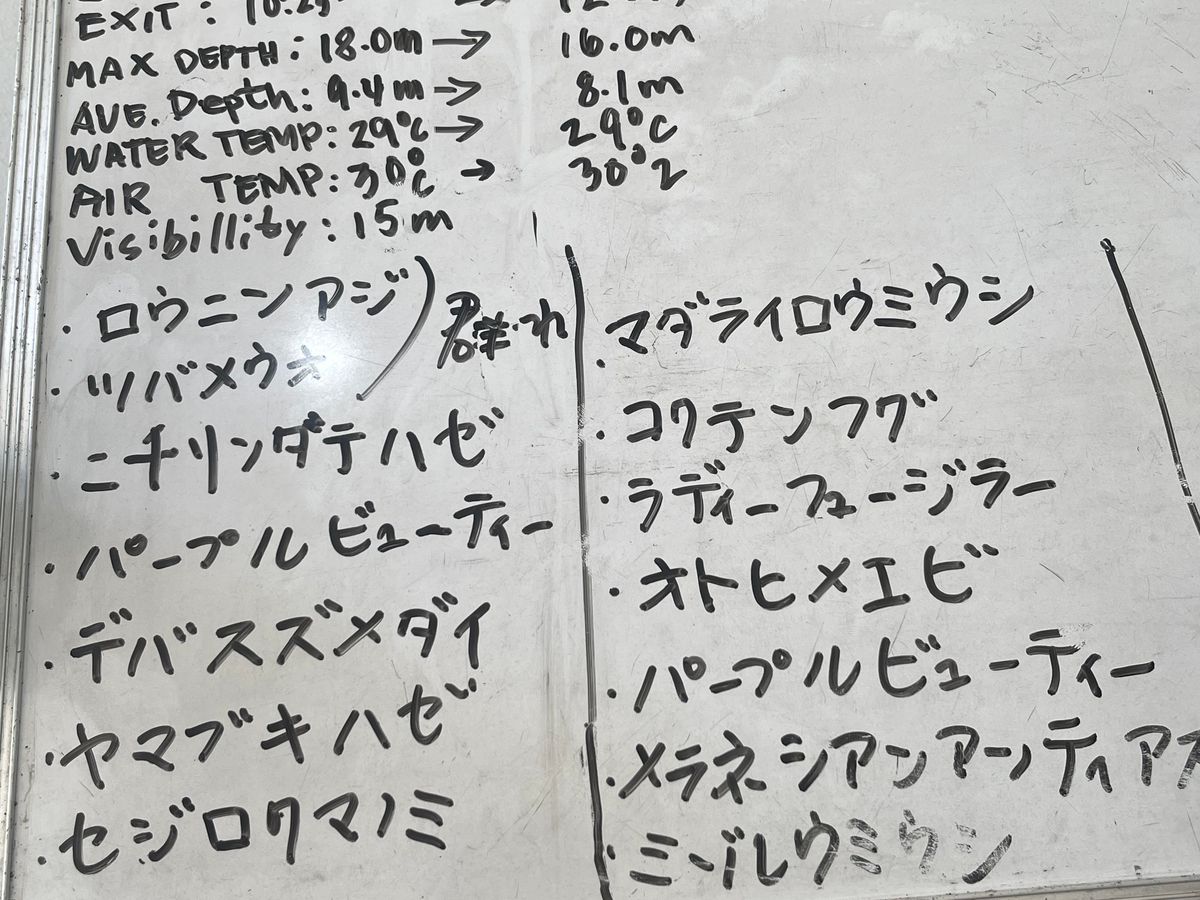 EXIT:
MAX DEPTH: 18.0m → 16.0m
AVE. Depth: 9.4m → 8.1m
WATER TEMP: 29°C → 29°C
AIR TEMP: 30°C → 30°C
Visibillity: 15m
・ロウニンアジ) 群れ
・ツバメウオ
・ニチリンダテハゼ
・パープルビューティー
・デバスズメダイ
・ヤマブキハゼ
・セジロクマノミ
・マダライロウミウシ
・コクテンフグ
・ラディーフュージラー
・オトヒメエビ
・パープルビューティー
・メラネシアンアンティアス
・ミゾレウミウシ